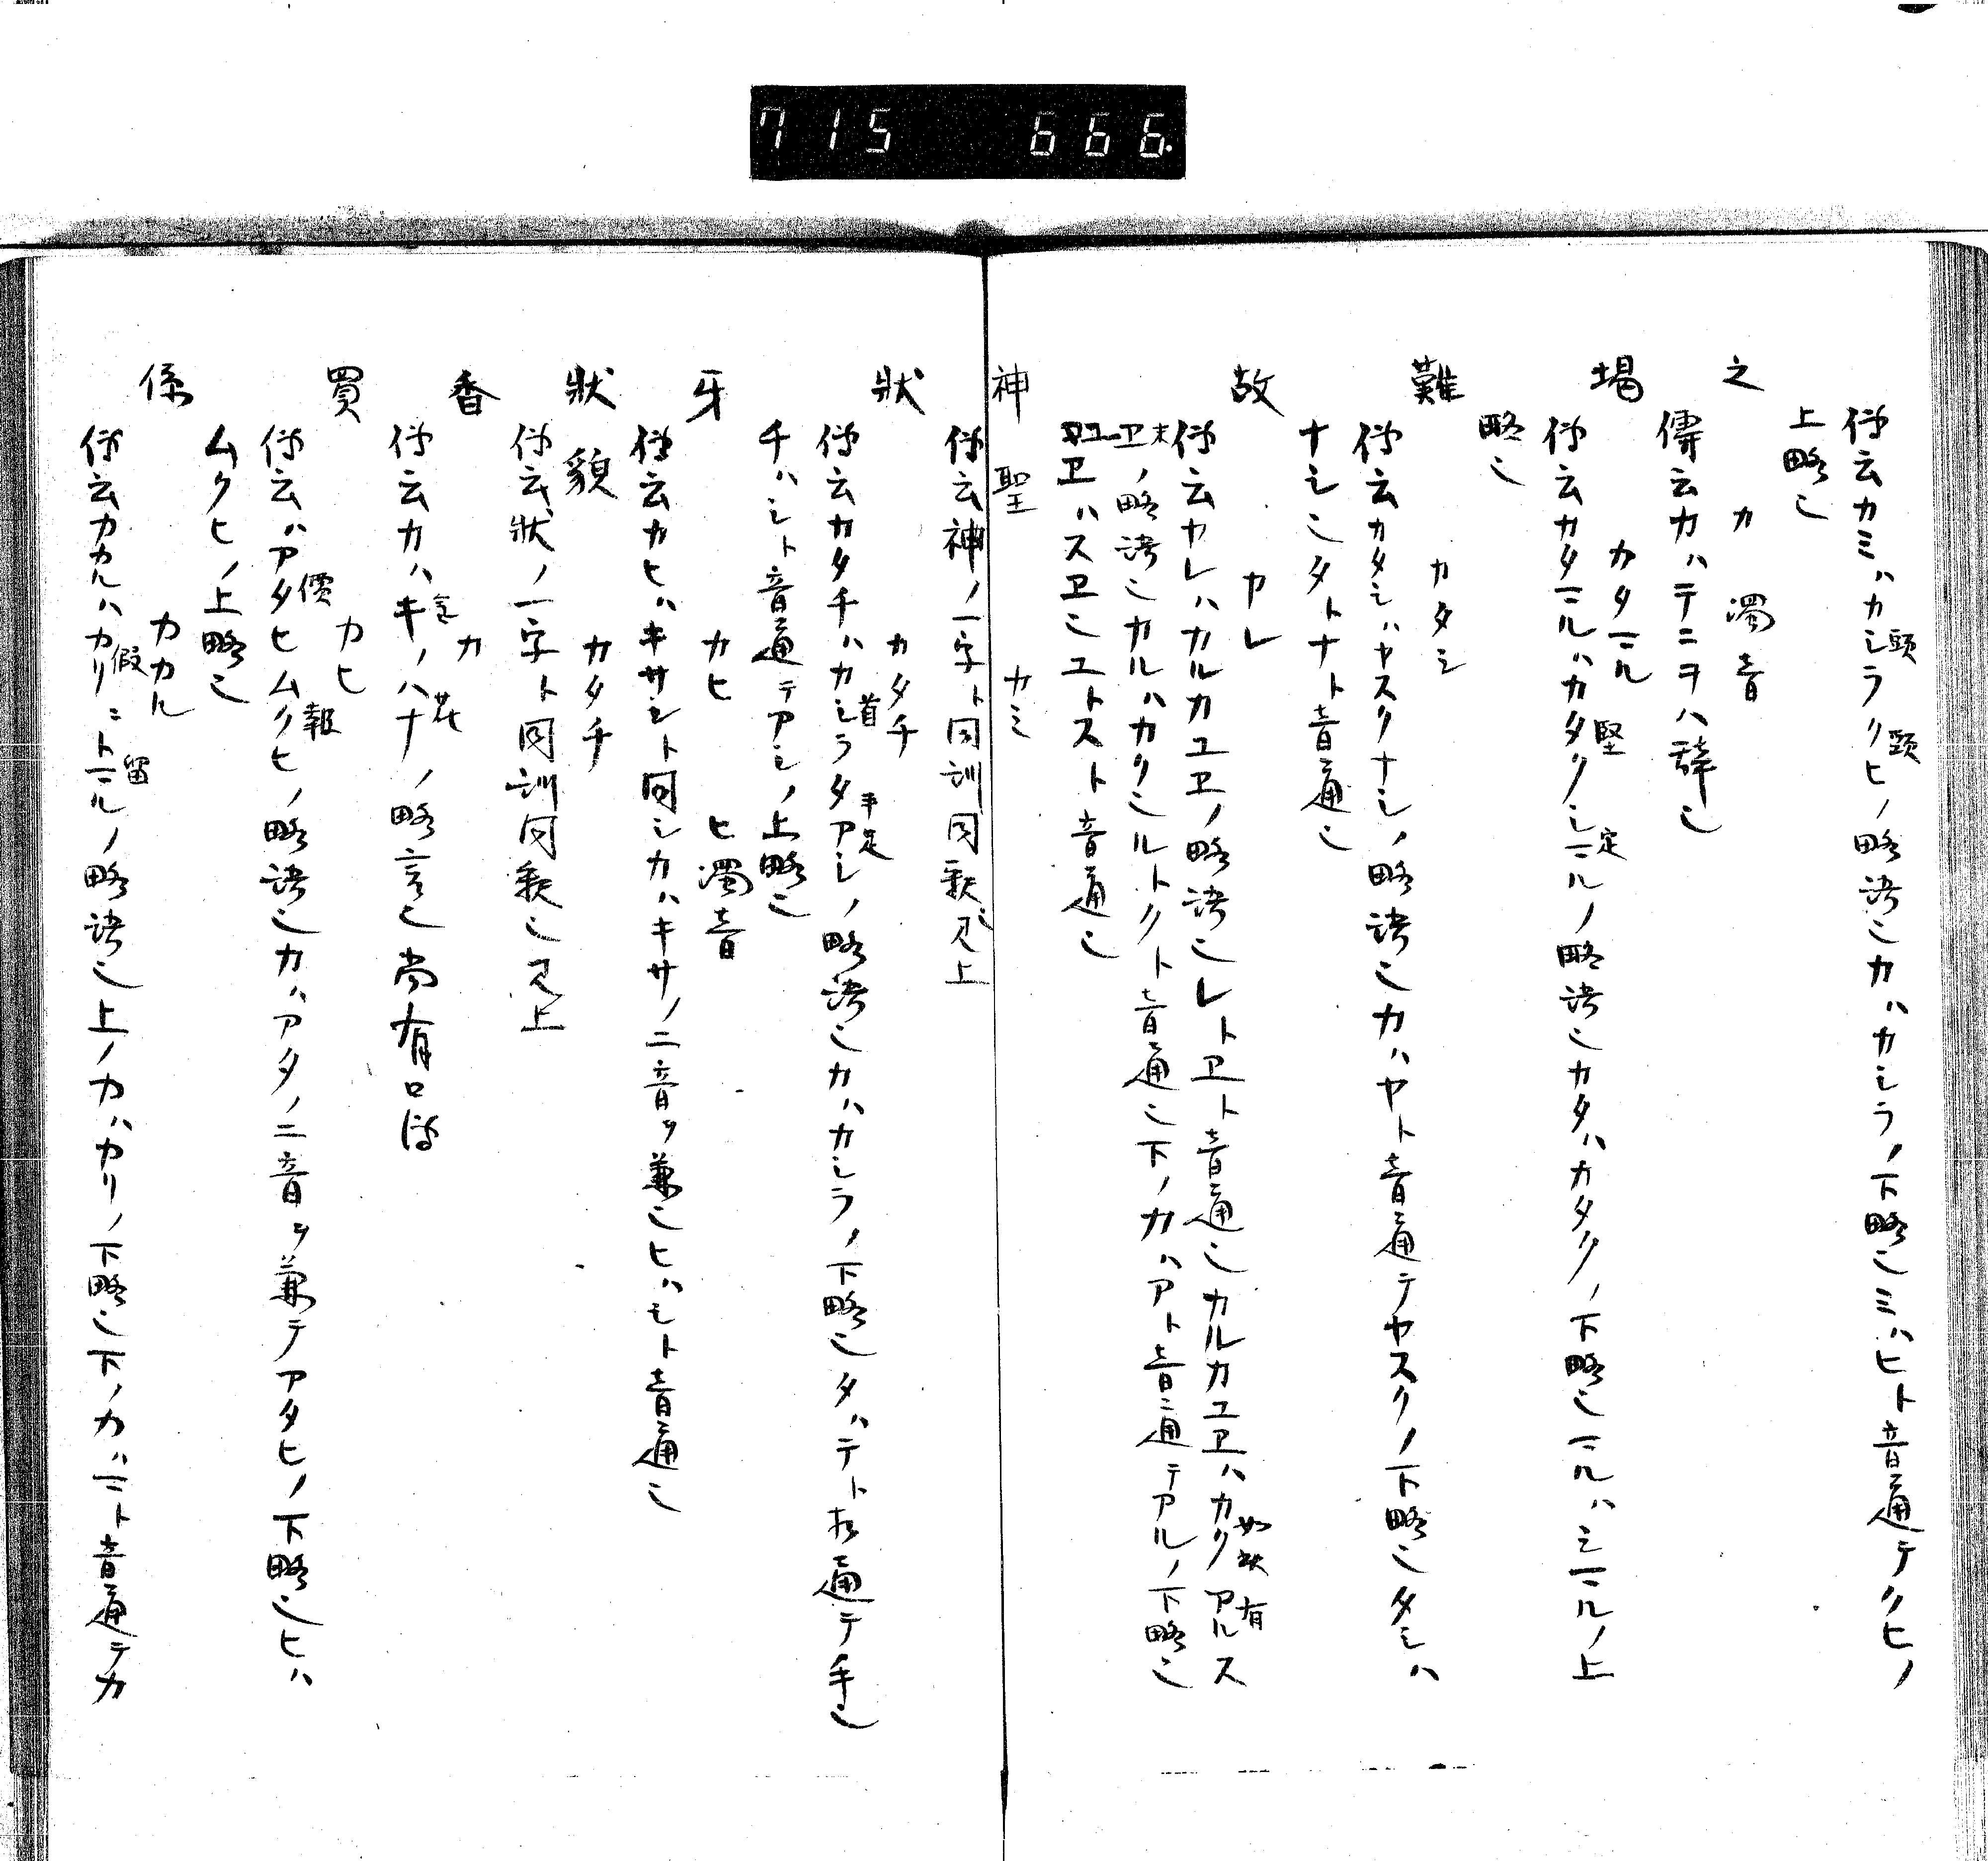 715 666
傳云カミハカシラクヒノ略語也カハカシラノ下略也ミハヒト音通テクヒノ
頭 頸
上略也
之 カ 濁音
傳云カハテニヲハ辞也
堨 カタマル
傳云カタマルハカタクシマルノ略語也カタハカタクノ下略也マルハシマルノ上
堅 定
略也
難 カタシ
傳云カタシハヤスクナシノ略語也カハヤト音通テヤスクノ下略也タシハ
ナシ也タトナト音通也
故 カレ
傳云カレハカルカユヱノ略語也レトヱト音通也カルカユヱハカクアルス
如然 有
ヱノ略語也カルハカク也ルトクト音通也下ノカハアト音通テアルノ下略也
末
ユヱハスヱ也ユトスト音通也
神聖 カミ
傳云神ノ一字ト同訓同釈也見上
狀 カタチ
傳云カタチハカシラタアシノ略語也カハカシラノ下略也タハテト相通テ手也
首 手足
チハシト音通テアシノ上略也
牙 カヒ ヒ濁音
傳云カヒハキサシト同シカハキサノ二音ヲ兼也ヒハシト音通也
狀貌 カタチ
傳云狀ノ一字ト同訓同釈也見上
香 カ
傳云カハキノハナノ略言也尚有口傳
花
買 カヒ
傳云ハアタヒムクヒノ略語也カハアタノ二音ヲ兼テアタヒノ下略也ヒハ
價 報
ムクヒノ上略也
係 カカル
傳云カカルハカリニトマルノ略語也上ノカハカリノ下略也下ノカハマト音通テカ
假 留